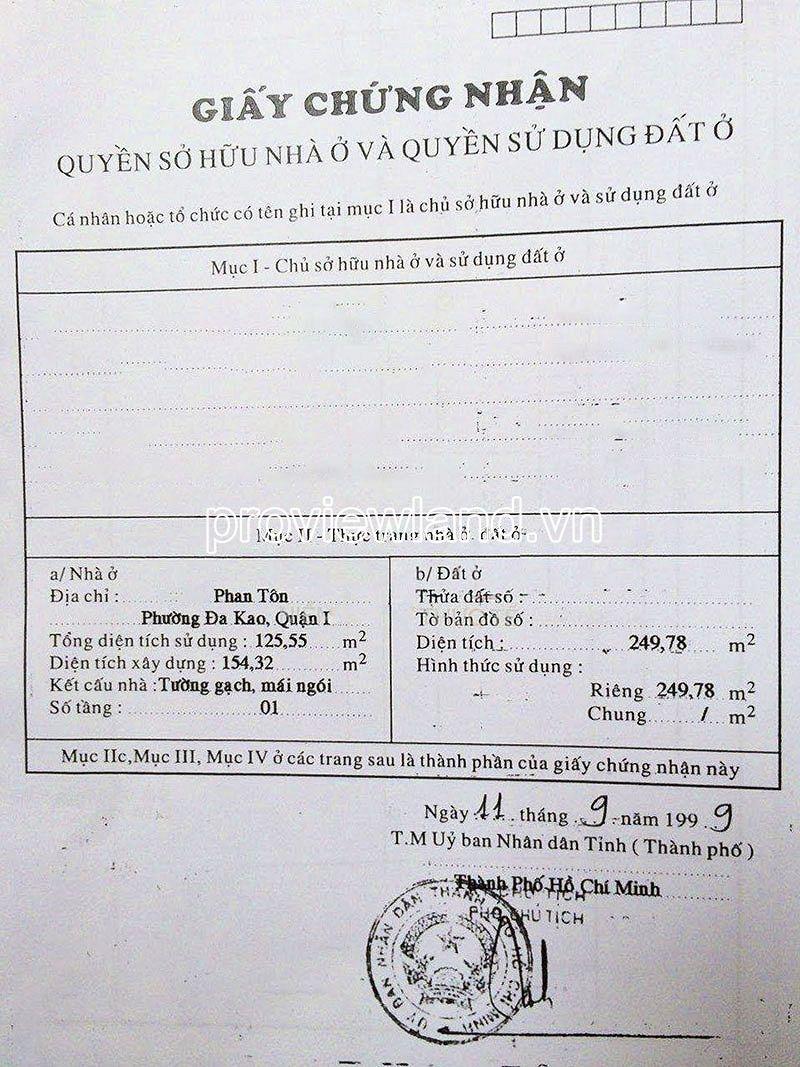 GIẤY CHỨNG NHẬN
QUYỀN SỞ HỮU NHÀ Ở VÀ QUYỀN SỬ DỤNG ĐẤT Ở
Cá nhân hoặc tổ chức có tên ghi tại mục I là chủ sở hữu nhà ở và sử dụng đất ở
Mục I - Chủ sở hữu nhà ở và sử dụng đất ở
proviewland.vn
Mục II - Thực trạng nhà ở, đất ở
a/ Nhà ở
Địa chỉ : Phan Tôn
Phường Đa Kao, Quận I
Tổng diện tích sử dụng : 125,55 m2
Diện tích xây dựng : 154,32 m2
Kết cấu nhà : Tường gạch, mái ngói
Số tầng : 01
b/ Đất ở
Thửa đất số :
Tờ bản đồ số :
Diện tích : 249,78 m2
Hình thức sử dụng :
Riêng 249,78 m2
Chung / m2
Mục IIc,Mục III, Mục IV ở các trang sau là thành phần của giấy chứng nhận này
Ngày 11 tháng 9 năm 1999
T.M Uỷ ban Nhân dân Tỉnh ( Thành phố )
Thành Phố Hồ Chí Minh
CHỦ TỊCH
PHÓ CHỦ TỊCH
ỦY BAN NHÂN DÂN THÀNH PHỐ HỒ CHÍ MINH